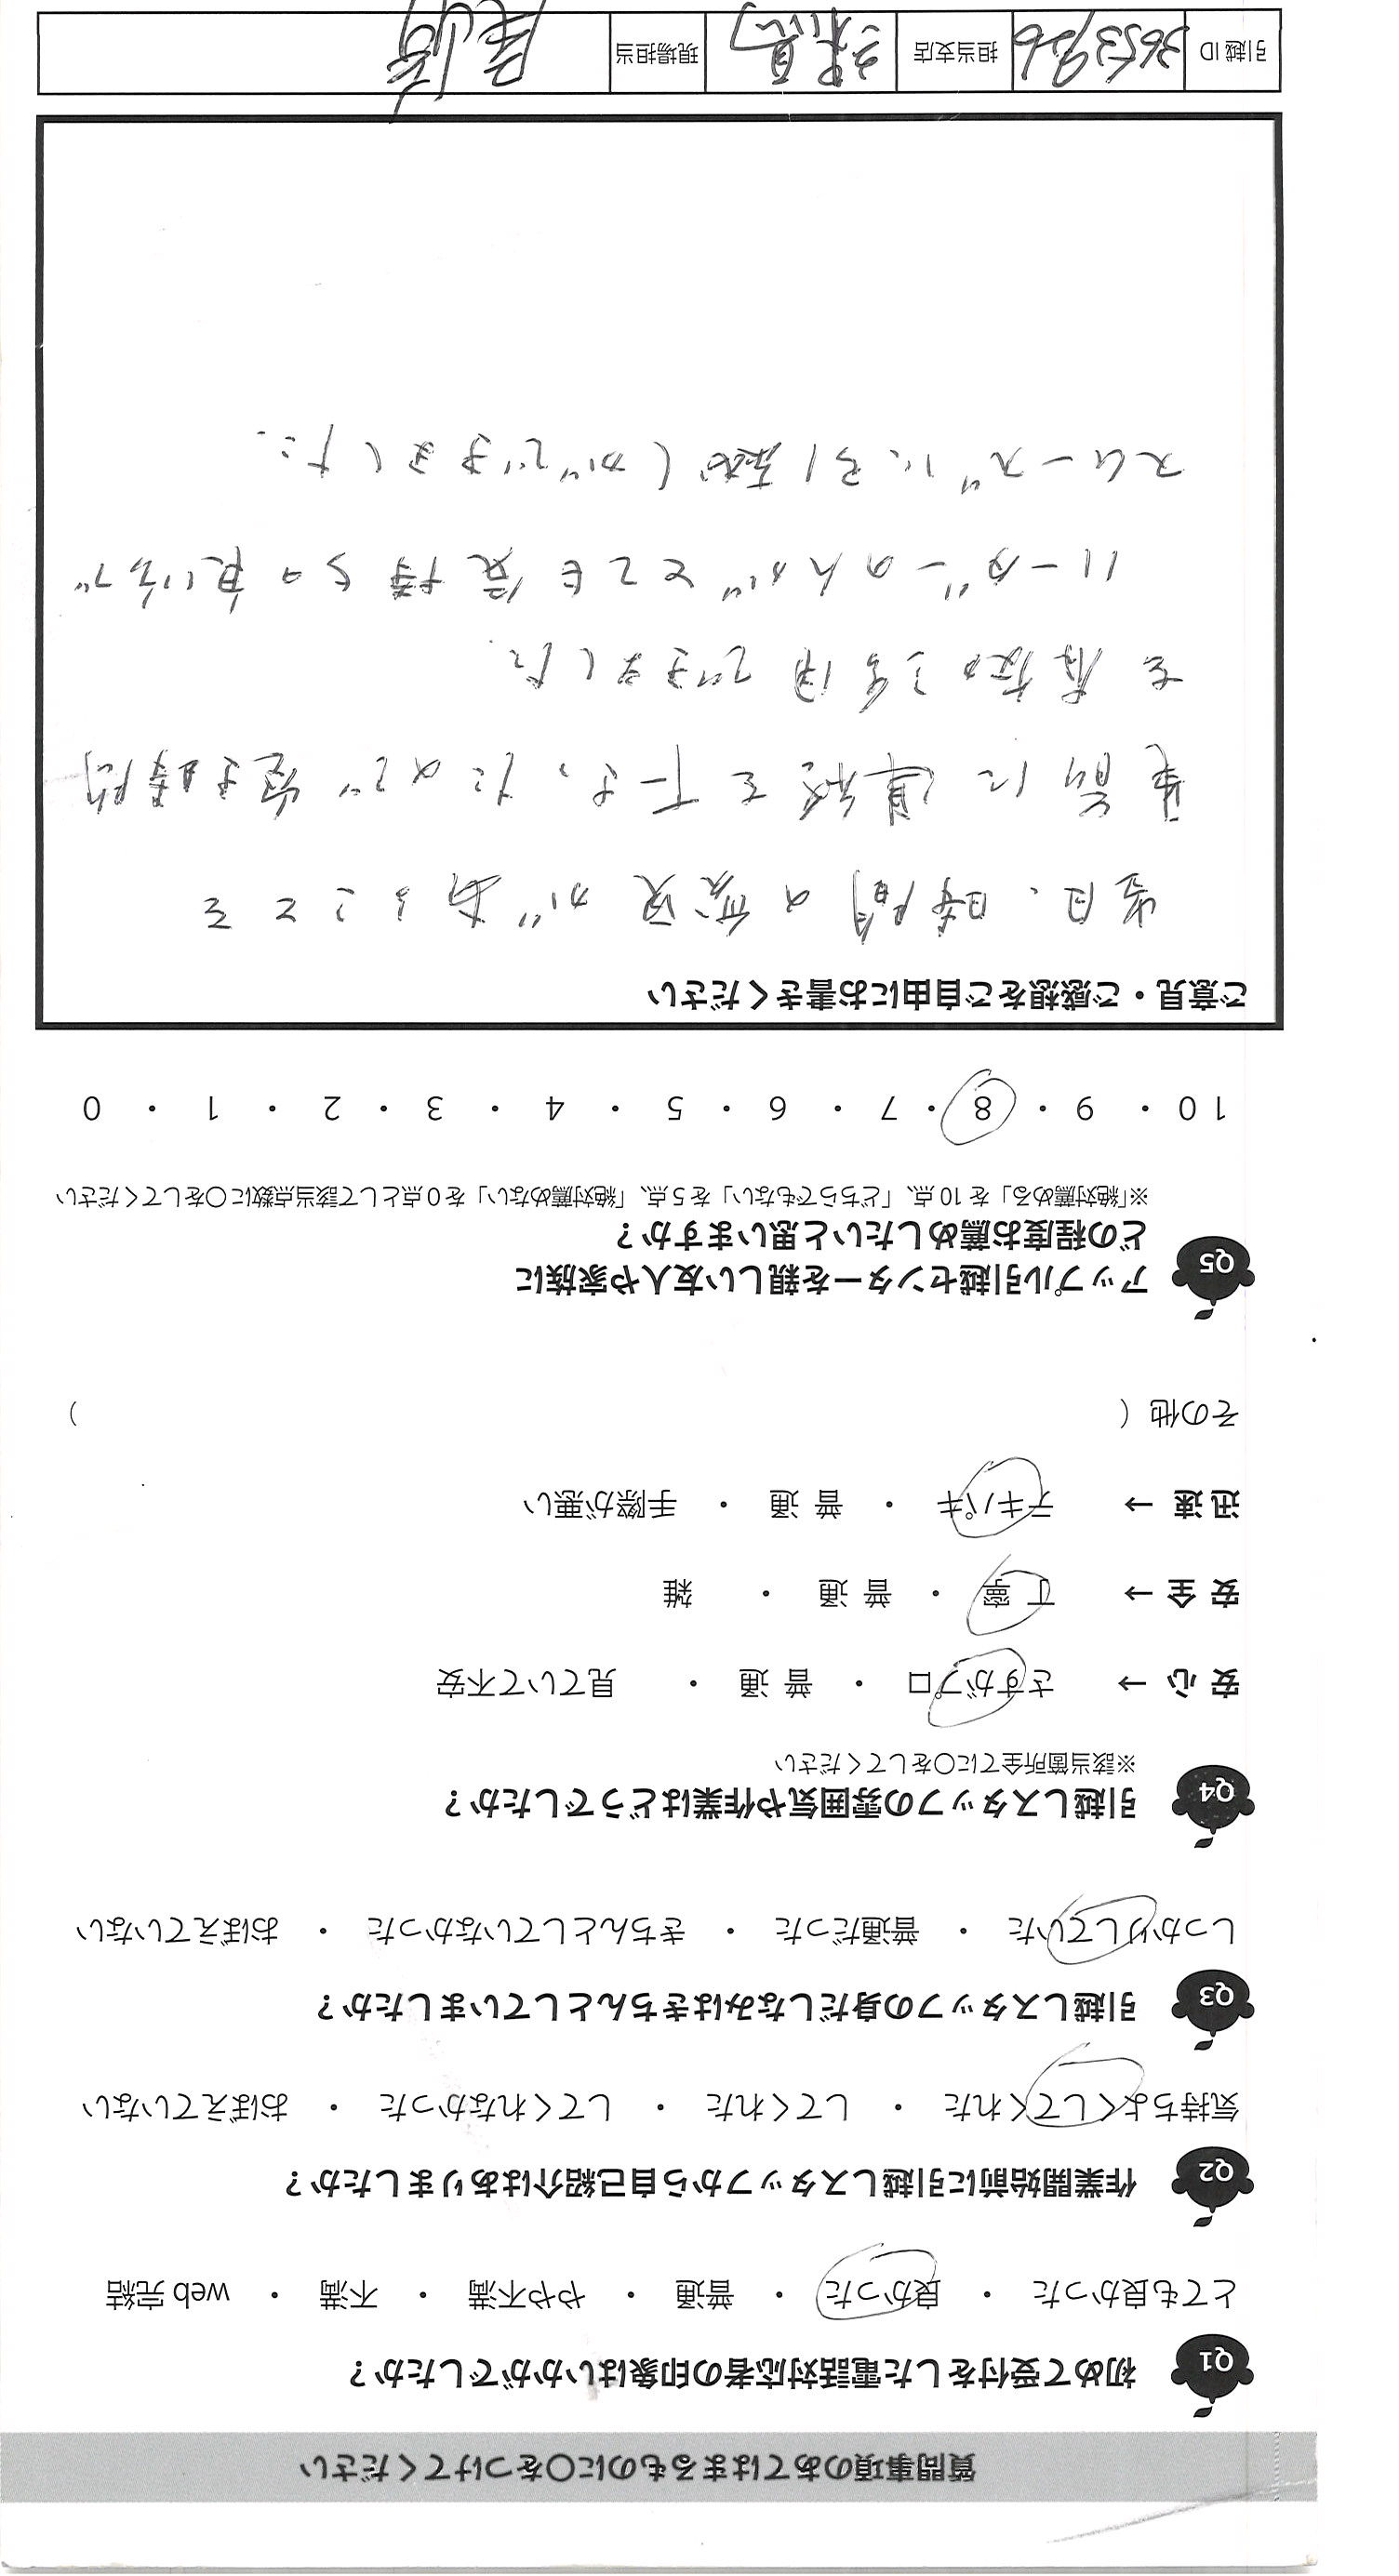 質問事項のあてはまるものに○をつけてください
Q1 初めて受付をした電話対応者の印象はいかがでしたか？
とても良かった ・ 良かった ・ 普通 ・ やや不満 ・ 不満 ・ web 完結
Q2 作業開始前に引越しスタッフから自己紹介はありましたか？
気持ちよくしてくれた ・ してくれた ・ してくれなかった ・ おぼえていない
Q3 引越しスタッフの身だしなみはきちんとしていましたか？
しっかりしていた ・ 普通だった ・ きちんとしていなかった ・ おぼえていない
Q4 引越しスタッフの雰囲気や作業はどうでしたか？
※該当箇所全てに○をしてください
安 心 → さすがプロ ・ 普 通 ・ 見ていて不安
安 全 → 丁 寧 ・ 普 通 ・ 雑
迅 速 → テキパキ ・ 普 通 ・ 手際が悪い
その他（ ）
Q5 アップル引越センターを親しい友人や家族に
どの程度お薦めしたいと思いますか？
※「絶対薦める」を 10 点、「どちらでもない」を 5 点、「絶対薦めない」を 0 点として該当点数に○をしてください
10 ・ 9 ・ 8 ・ 7 ・ 6 ・ 5 ・ 4 ・ 3 ・ 2 ・ 1 ・ 0
ご意見・ご感想をご自由にお書きください
当日、時間の変更があることを
事前に連絡を下さったので空き時間
を有效に活用できました。
リーダーの人がとても気持ちの良い方で
スムーズに引越しができました。
引越 ID 3653926 担当支店 練馬 現場担当 尾崎